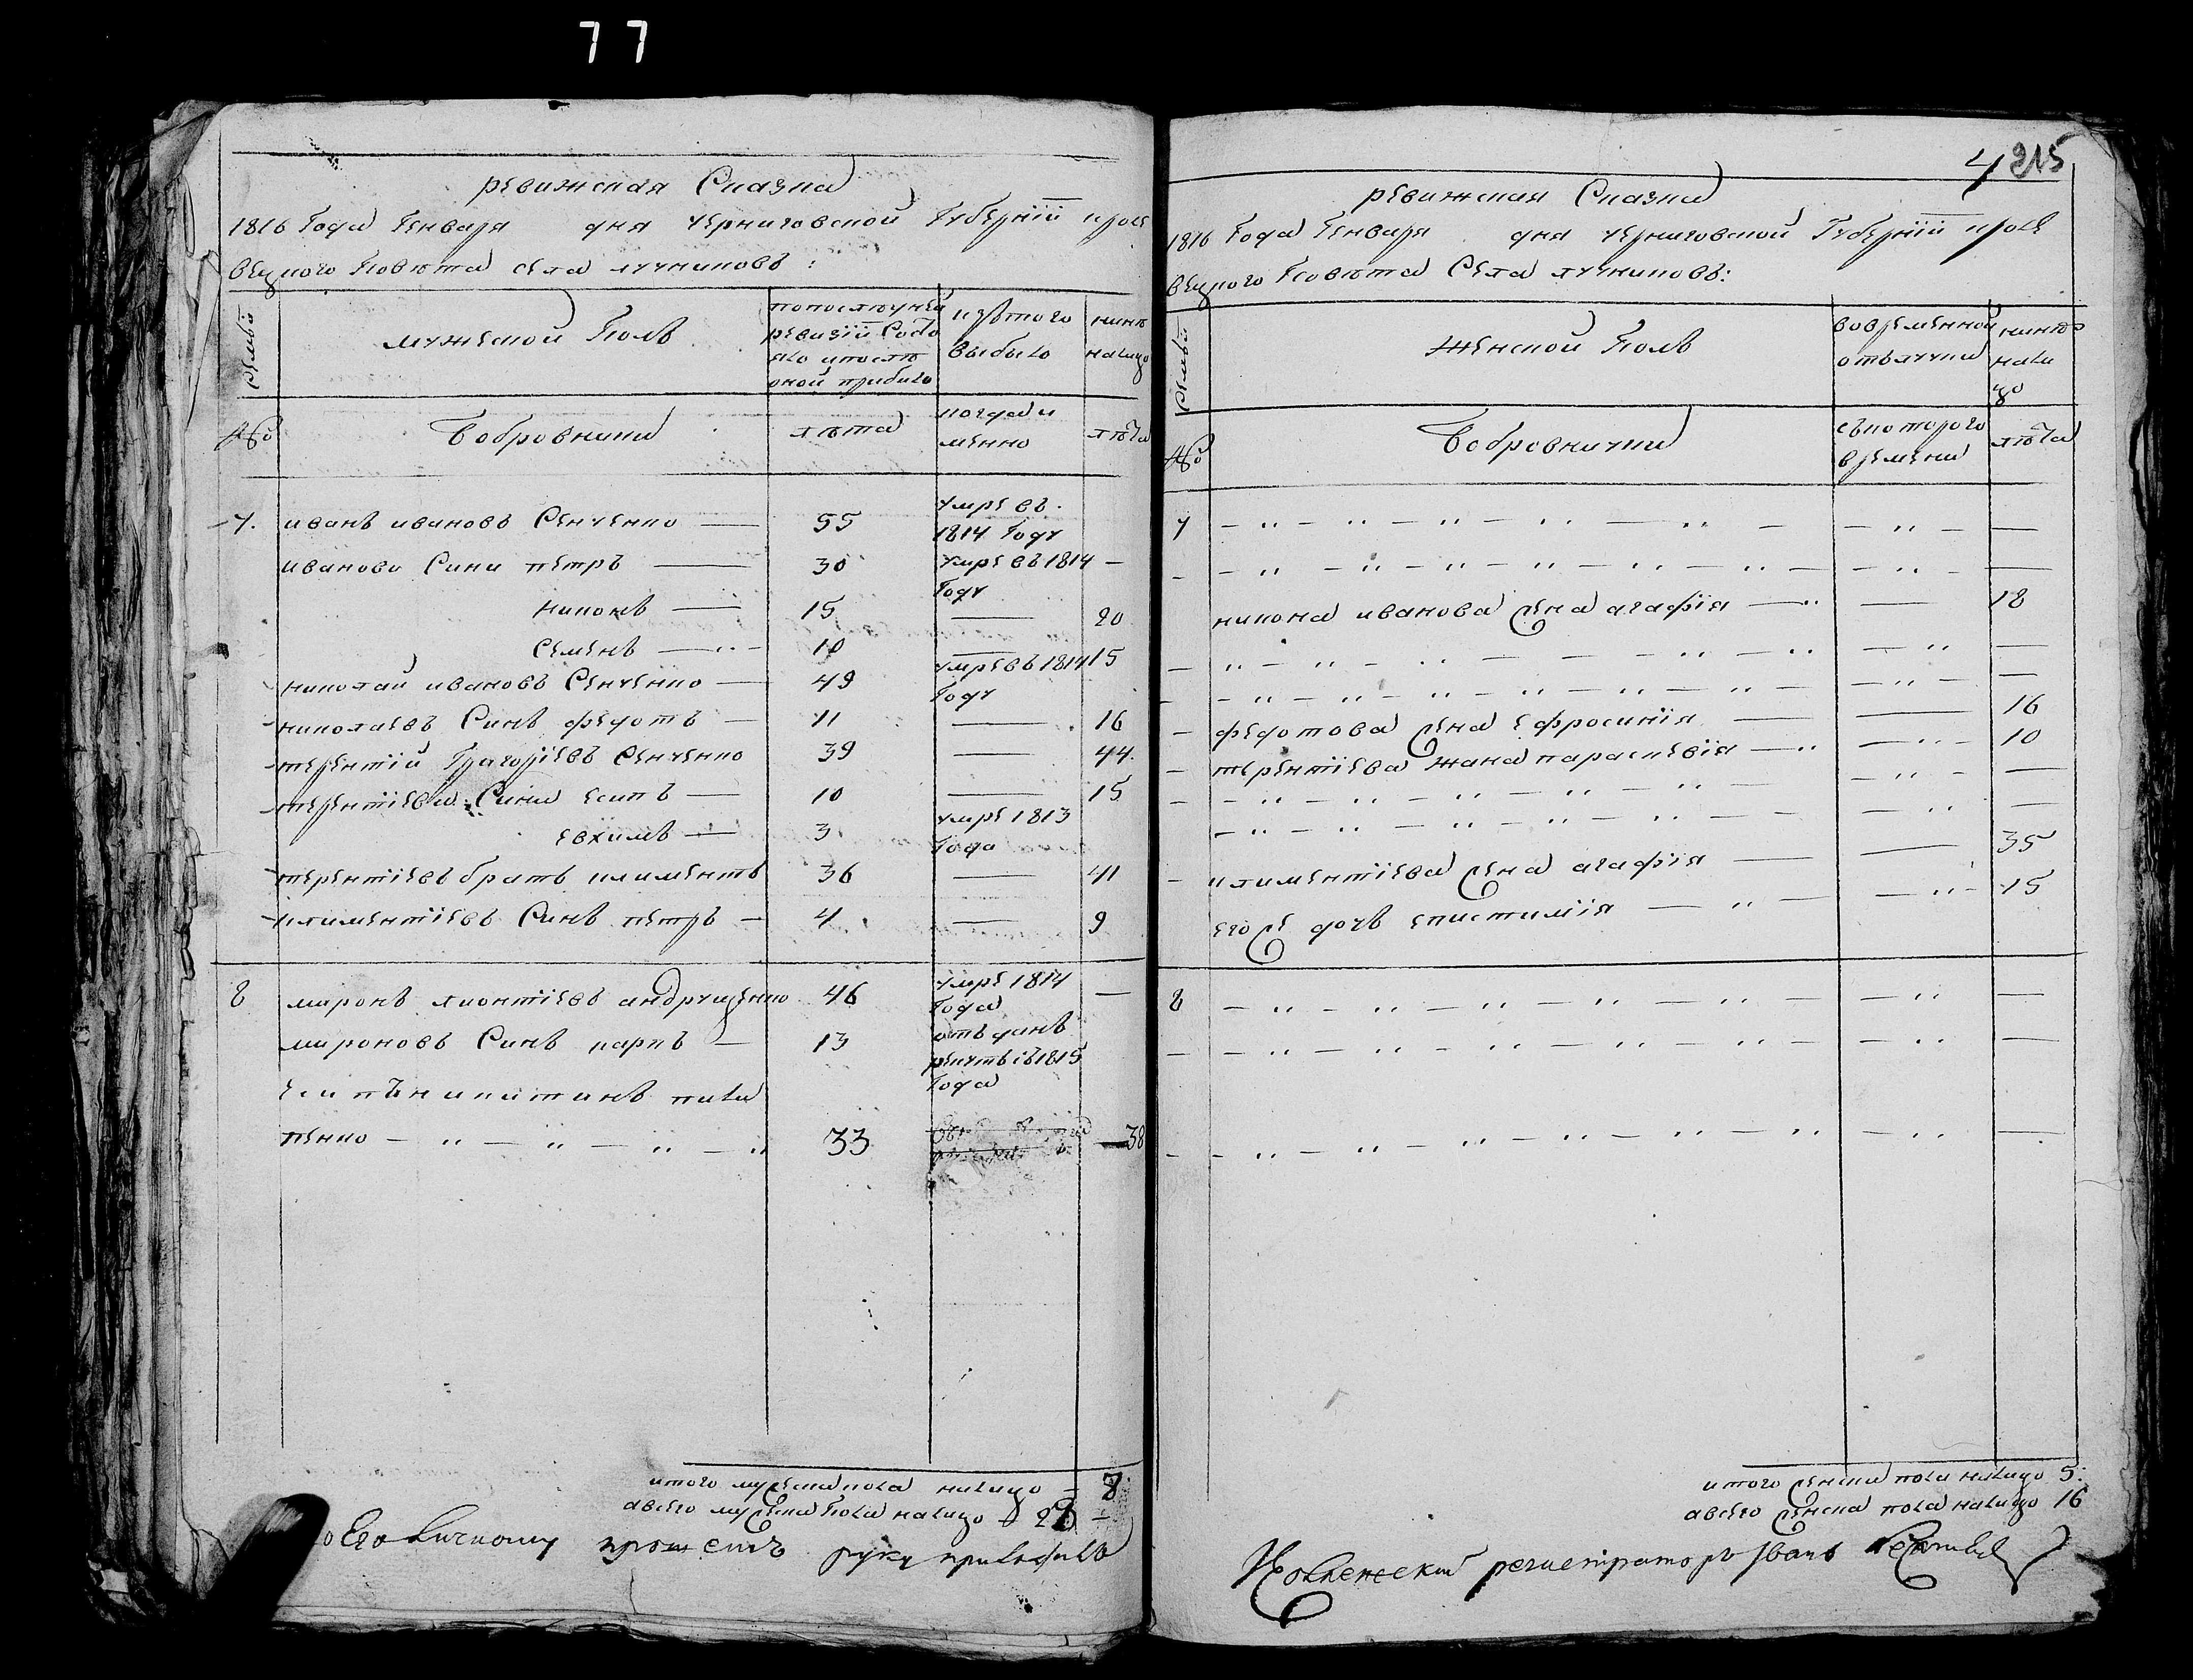 77
ревижская Сказка
1816 Года Генваря дня черниговской Губернiи кроле
вецкого Повѣта села лучниковъ:
семьи
мужеской Полъ
попоследней
ревизiи Состо
яло ипослѣ
оной прибыло
изътого
выбыло
нинѣ
налицо
№
Бобровники
лѣта
когда и
менно
лѣта
7. иванъ ивановъ Сенченко — 55 умре въ
1814 Году
иванови Сини петръ — 30 умре въ 1814 —
Году
никонъ — 15 — 20
Семенъ — 10 — 15
николай ивановъ Сенченко — 49 умре въ 1814
Году
николаевъ Синъ федотъ — 11 — 16
терентiй Григорiевъ Сенченко 39 — 44
терентiеви Сини есипъ — 10 — 15
евхимъ — 3 умре 1813
Года
терентiевъ братъ климентъ 36 — 41
климентiевъ Синъ петръ — 4 — 9
8 миронъ лионтiевъ андрущенко 46 умре 1814 —
Года
мироновъ Синъ карпъ — 13 отъданъ
рекутъ въ 1815
Года
есипъ никитинъ пили
пенко — 33 — 38
итого мужеска пола налицо — 8
авсего мужеска Пола налицо 28
о Его личному прошению руку приложилъ
4 215
ревижская Сказка
1816 Года Генваря дня черниговской Губернiи кроле
вецкого Повѣта Села лучниковъ:
Семьи
Женской Полъ
вовременной
отълучки
нинѣ
нали
цо
№
Бобровнички
съкоторого
времени
лѣта
7 — — —
— — —
никона иванова жена агафiя — — 18
— — —
— — —
федотова жена ефросинiя — — 16
терентiева жана параскевiя — — 10
— — —
— — —
климентiева жена агафiя — — 35
егоже дочъ епистимiя — — 15
8 — — —
— — —
— — —
итого женска пола налицо 5:
авсего женска пола налицо 16
регистраторъ Иванъ